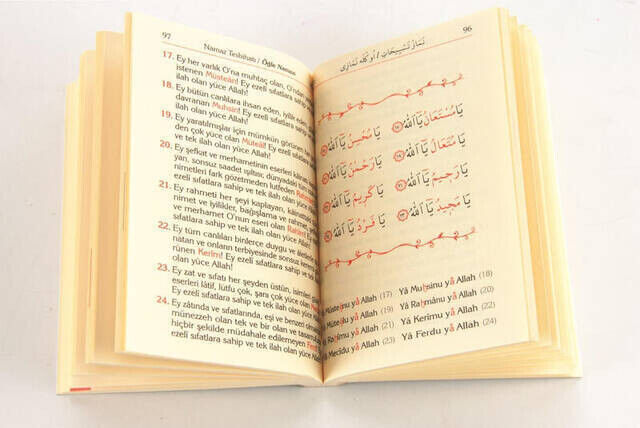 97 Namaz Tesbihatı / Öğle Namazı
17. Ey her varlık O'na muhtaç olan, O'nden
istenen Müsteân! Ey ezelî sıfatlara sahip
ilah olan yüce Allah!
18. Ey bütün canlılara ihsan eden, iyilik eden,
davranan Muhsin! Ey ezelî sıfatlara sahip
ilah olan yüce Allah!
19. Ey yaratılmışlar için mümkün görünen
den çok yüce olan Müteâl! Ey ezelî
ve tek ilah olan yüce Allah!
20. Ey şefkat ve merhametinin eserleri
yan, sonsuz saadet ışıtısı, dünyadaki tüm
nimetleri fark gözetmeden lutfeden Rahmân!
ezelî sıfatlara sahip ve tek ilah olan yüce Allah!
21. Ey rahmeti her şeyi kaplayan,
nimet ve iyilikler, bağışlama ve rahmet,
ve merhamet O'nun eseri olan Rahîm! Ey
ezelî sıfatlara sahip ve tek ilah olan yüce Allah!
22. Ey tüm canlıları binlerce duygu ve
natan ve onların terbiyesinde sonsuz kerem
rünen Kerîm! Ey ezelî sıfatlara sahip ve tek ilah
olan yüce Allah!
23. Ey zat ve sıfatı her şeyden üstün, isimleri
eserleri lâtif, lütfu çok, şanı çok yüce olan
Ey ezelî sıfatlara sahip ve tek ilah olan yüce Allah!
24. Ey zâtında ve sıfatlarında, eşi ve benzeri
münezzeh olan tek ve bir olan ve tasarrufuna
hiçbir şekilde müdahale edilemeyen Ferd!
ezelî sıfatlara sahip ve tek ilah olan yüce Allah!
نَمَازْ تَسْبِيحَاتِى / اُوكْلَه نَمَازِى 96
يَا مُسْتَعَانُ يَا اَللّٰهُ يَا مُحْسِنُ يَا اَللّٰهُ
يَا مُتَعَالُ يَا اَللّٰهُ يَا رَحْمٰنُ يَا اَللّٰهُ
يَا رَحِيمُ يَا اَللّٰهُ يَا كَرِيمُ يَا اَللّٰهُ
يَا مَجِيدُ يَا اَللّٰهُ يَا فَرْدُ يَا اَللّٰهُ
Müsteânu yâ Allah (17) Yâ Muhsinu yâ Allah (18)
Müteâlu yâ Allah (19) Yâ Rahmânu yâ Allah (20)
Rahîmu yâ Allah (21) Yâ Kerîmu yâ Allah (22)
Mecîdu yâ Allah (23) Yâ Ferdu yâ Allah (24)